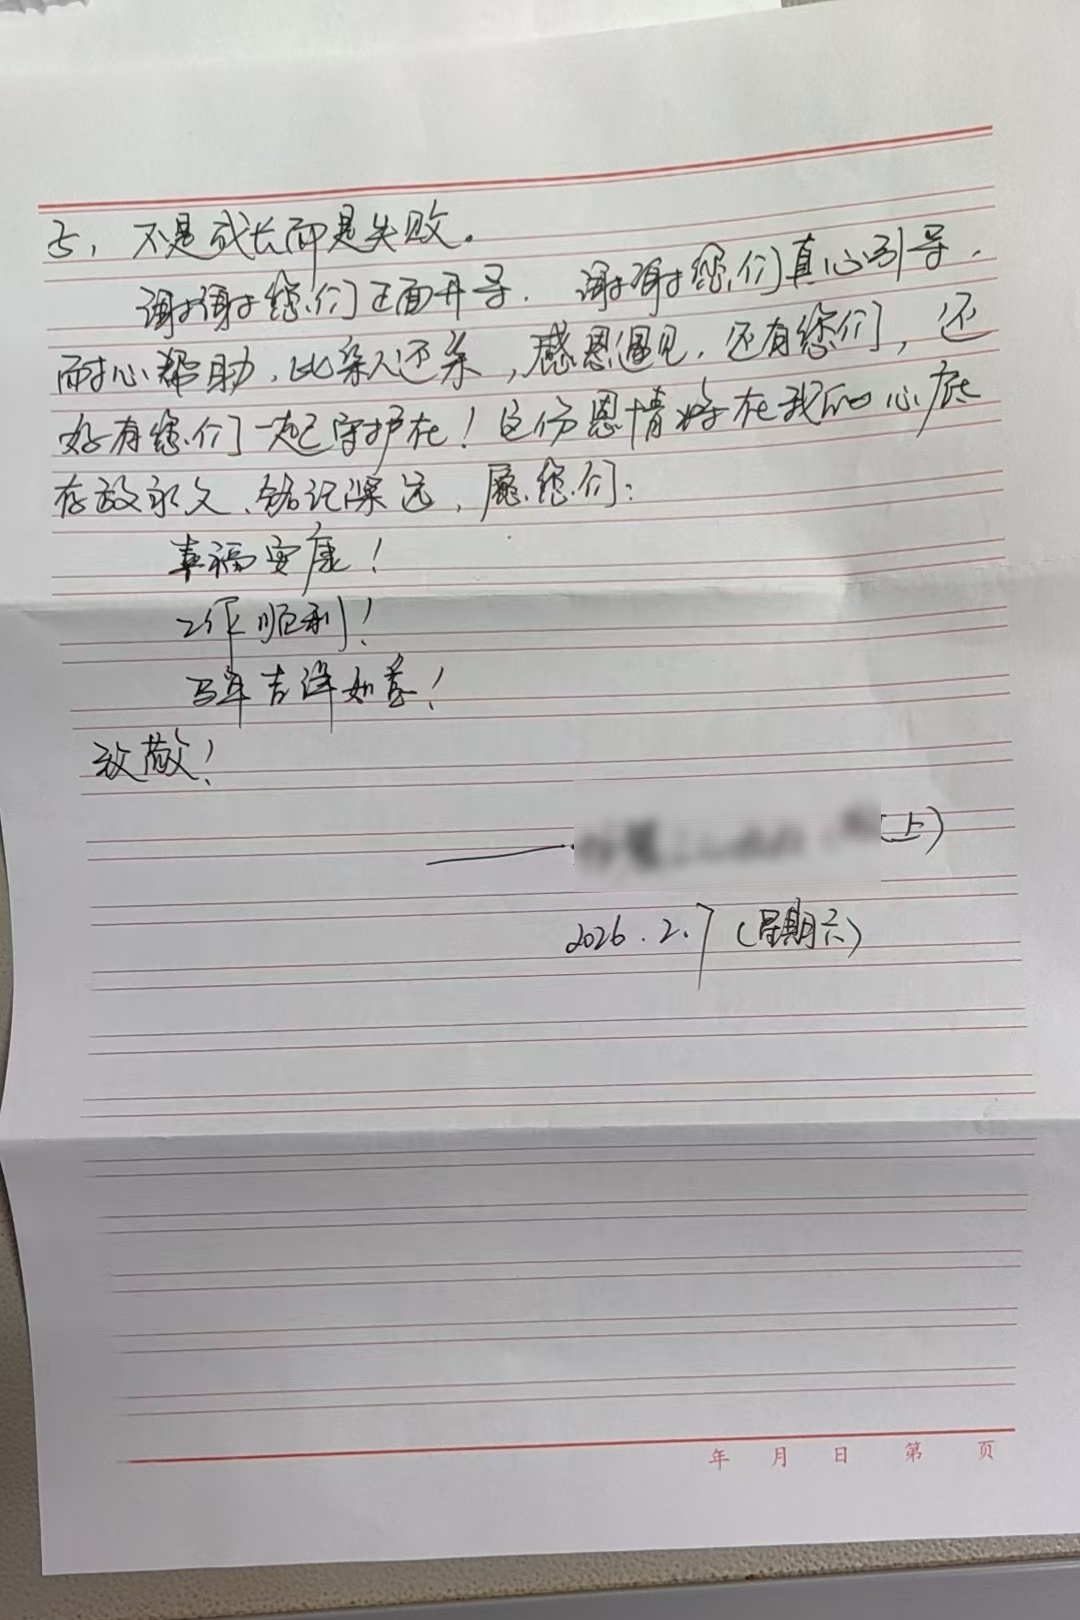 方，不是成长而是失败。
谢谢您们正面开导．谢谢您们真心引导．
耐心帮助．比亲人还亲，感恩遇见．还有您们，还
好有您们一起守护在！这份恩情将在我的心底
存放永久、铭记深远，愿您们：
幸福安康！
工作顺利！
马年吉祥如意！
致敬！
——（上）
2026．2．7（星期六）
年 月 日 第 页